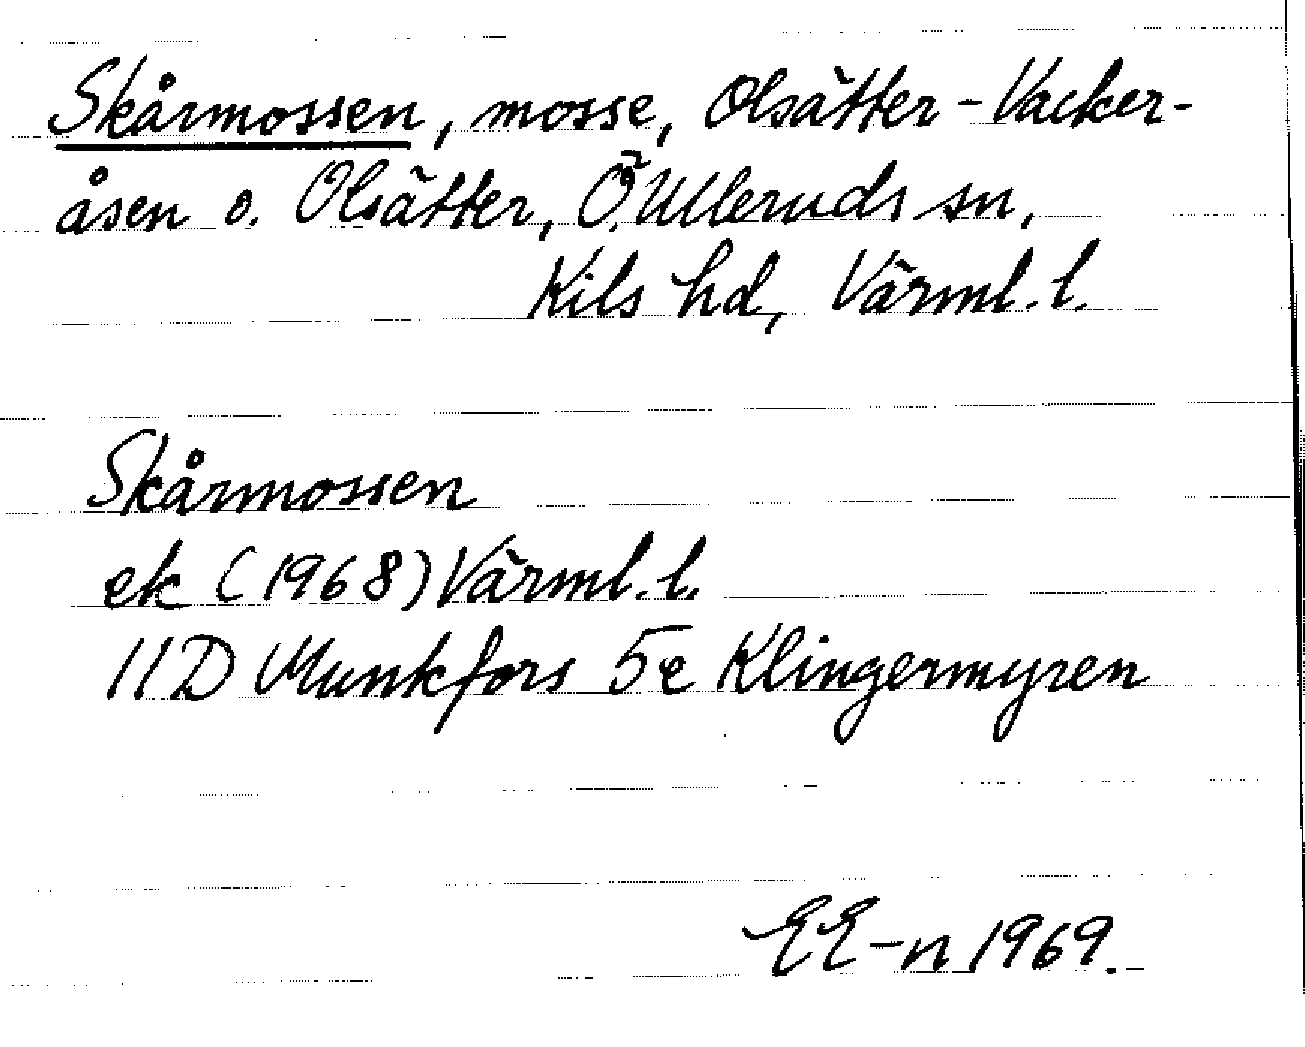 Skårmossen, mosse, Olsätter-Vacker-
åsen o. Olsätter, Ö. Ulleruds sn,
Kils hd, Värml. l.
Skårmossen
ek (1968) Värml. l.
11D Munkfors 5e Klingermyren
EE-n 1969.